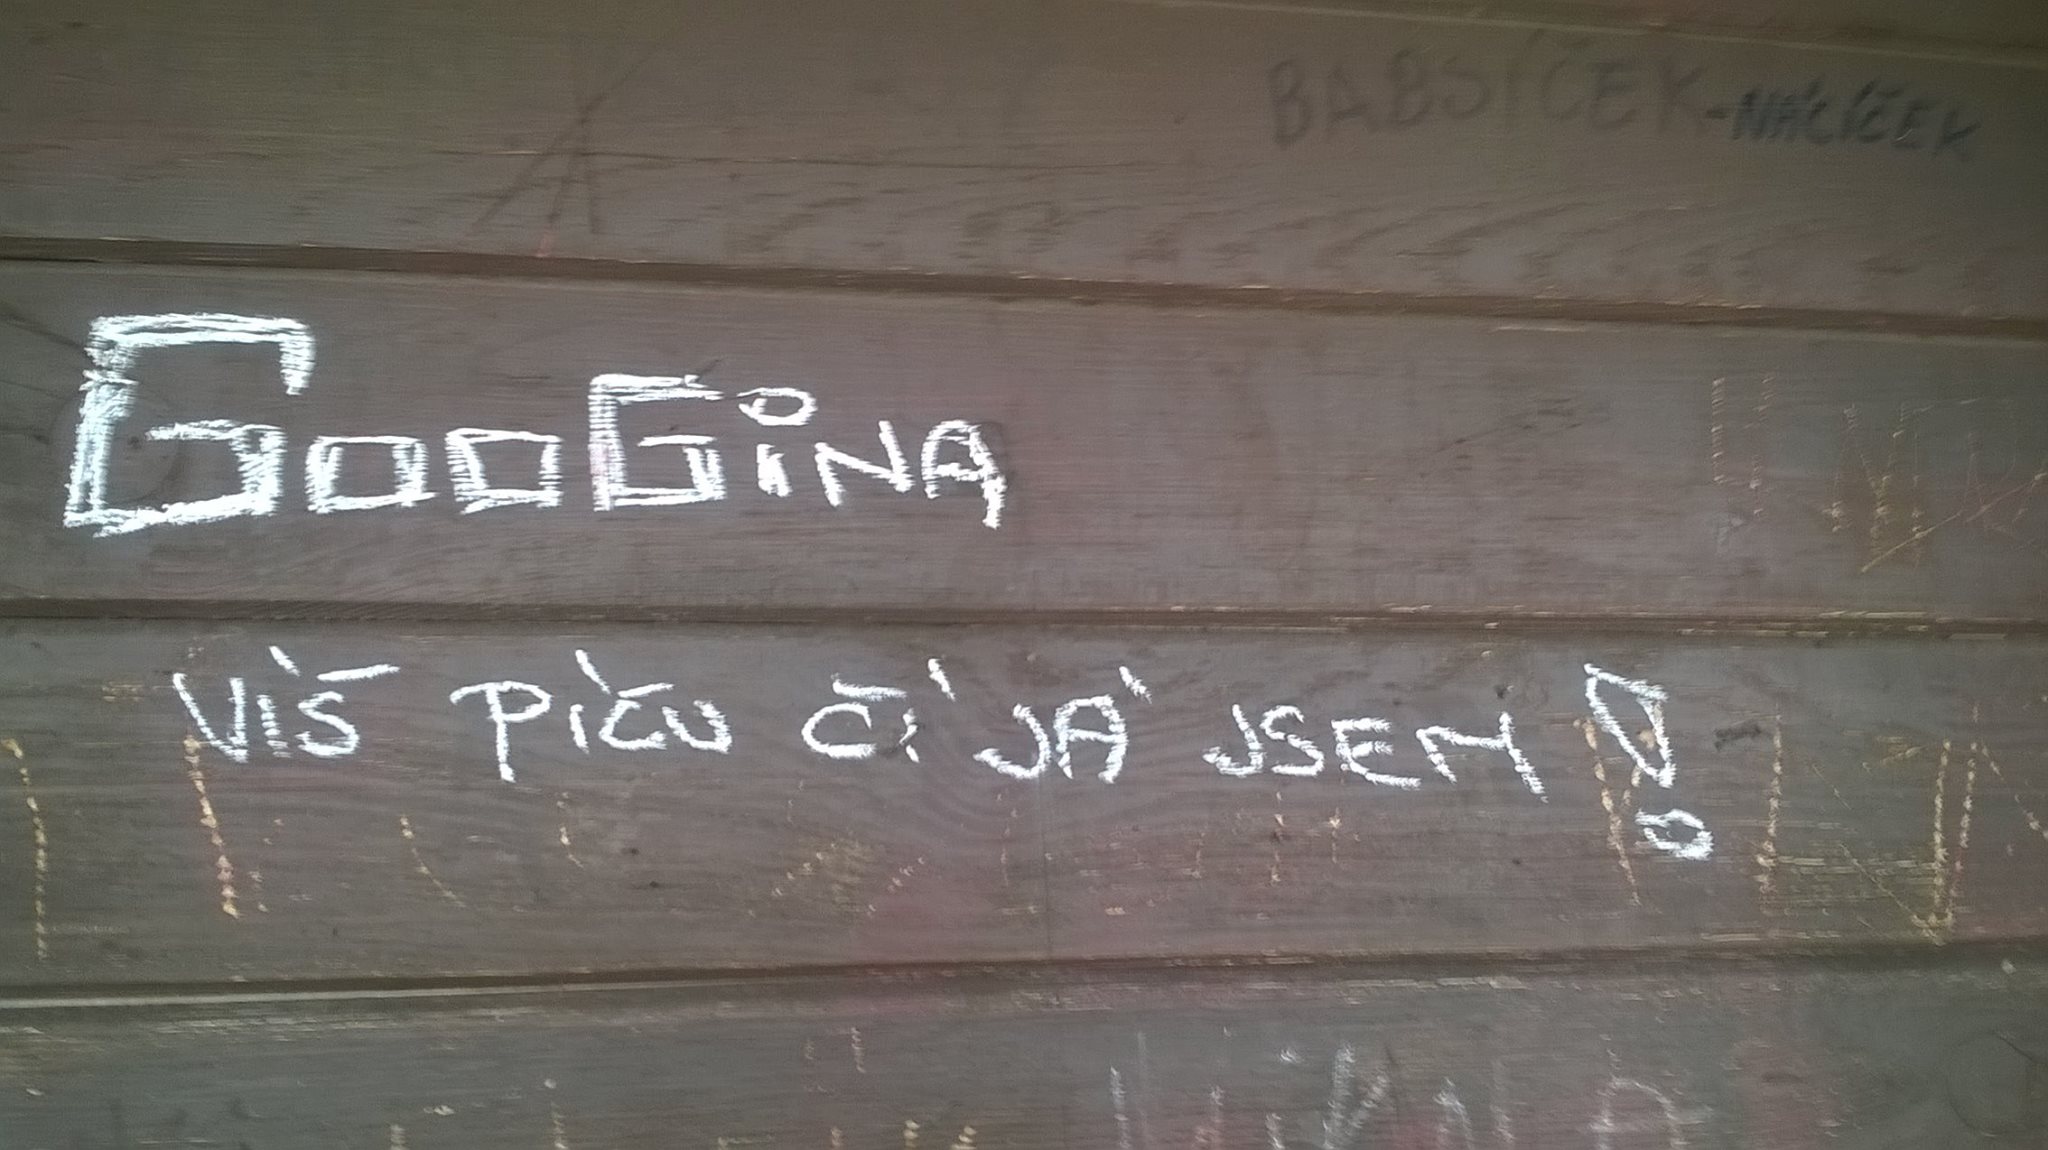 BABSÍČEK-NÁCÍČEK
GooGiNA
VíŠ PíČU Čí JÁ JSEM!